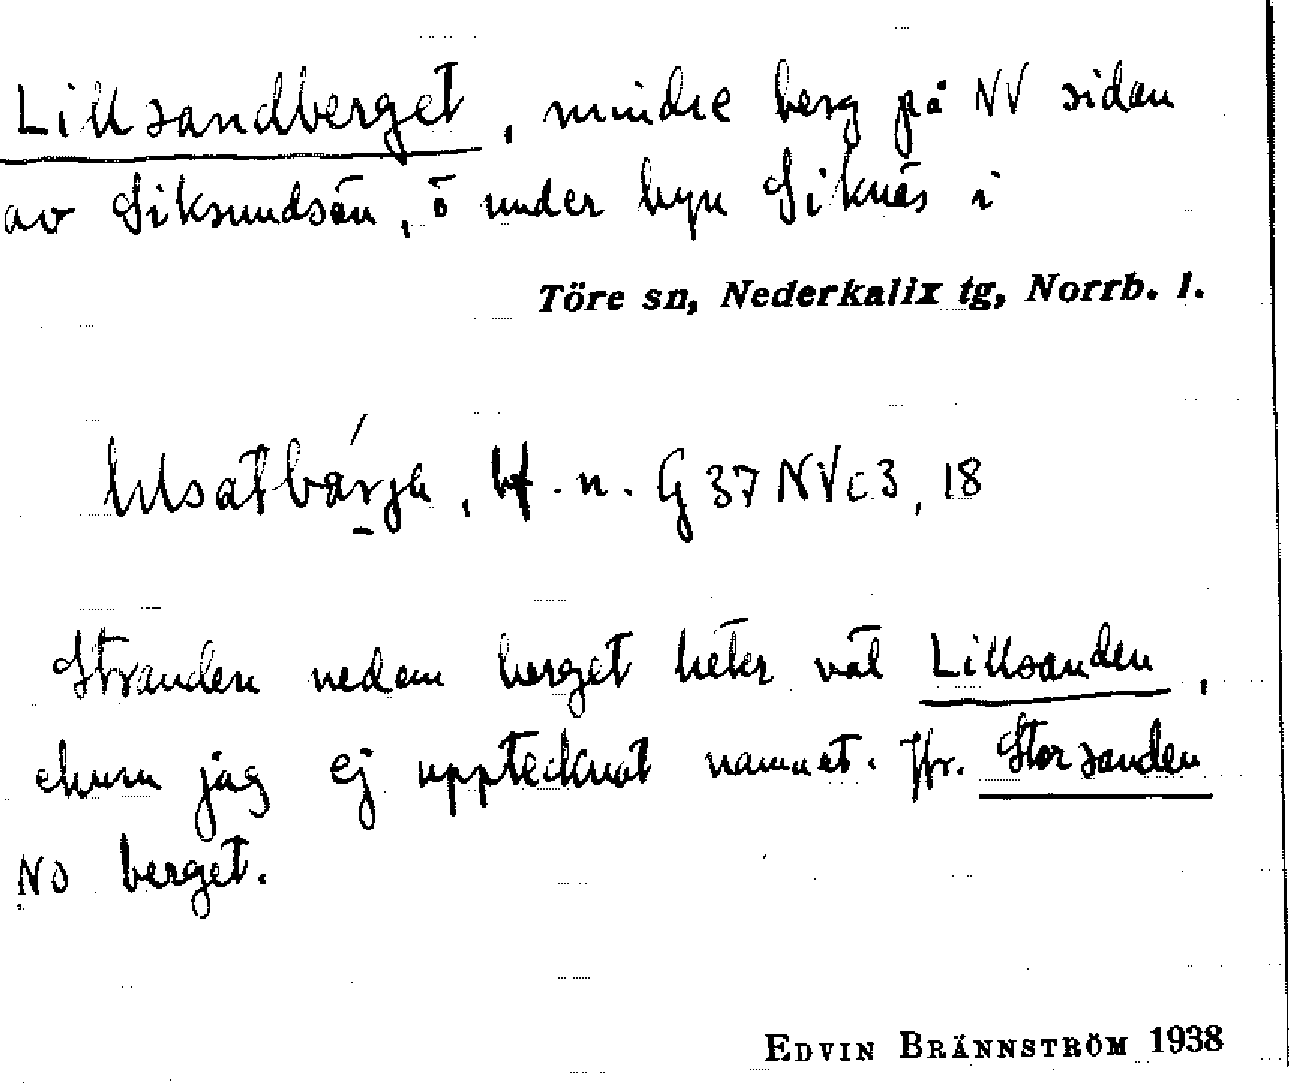 Lillsandberget, mindre berg på NV sidan
av Siksundsön, ö under byn Siknäs i
Töre sn, Nederkalix tg, Norrb. l.
bf. n. G 37 NV c 3, 18
Stranden nedom berget heter väl Lillsanden,
ehuru jag ej upptecknat namnet. Jfr. Storsanden
NO berget.
EDVIN BRÄNNSTRÖM 1938